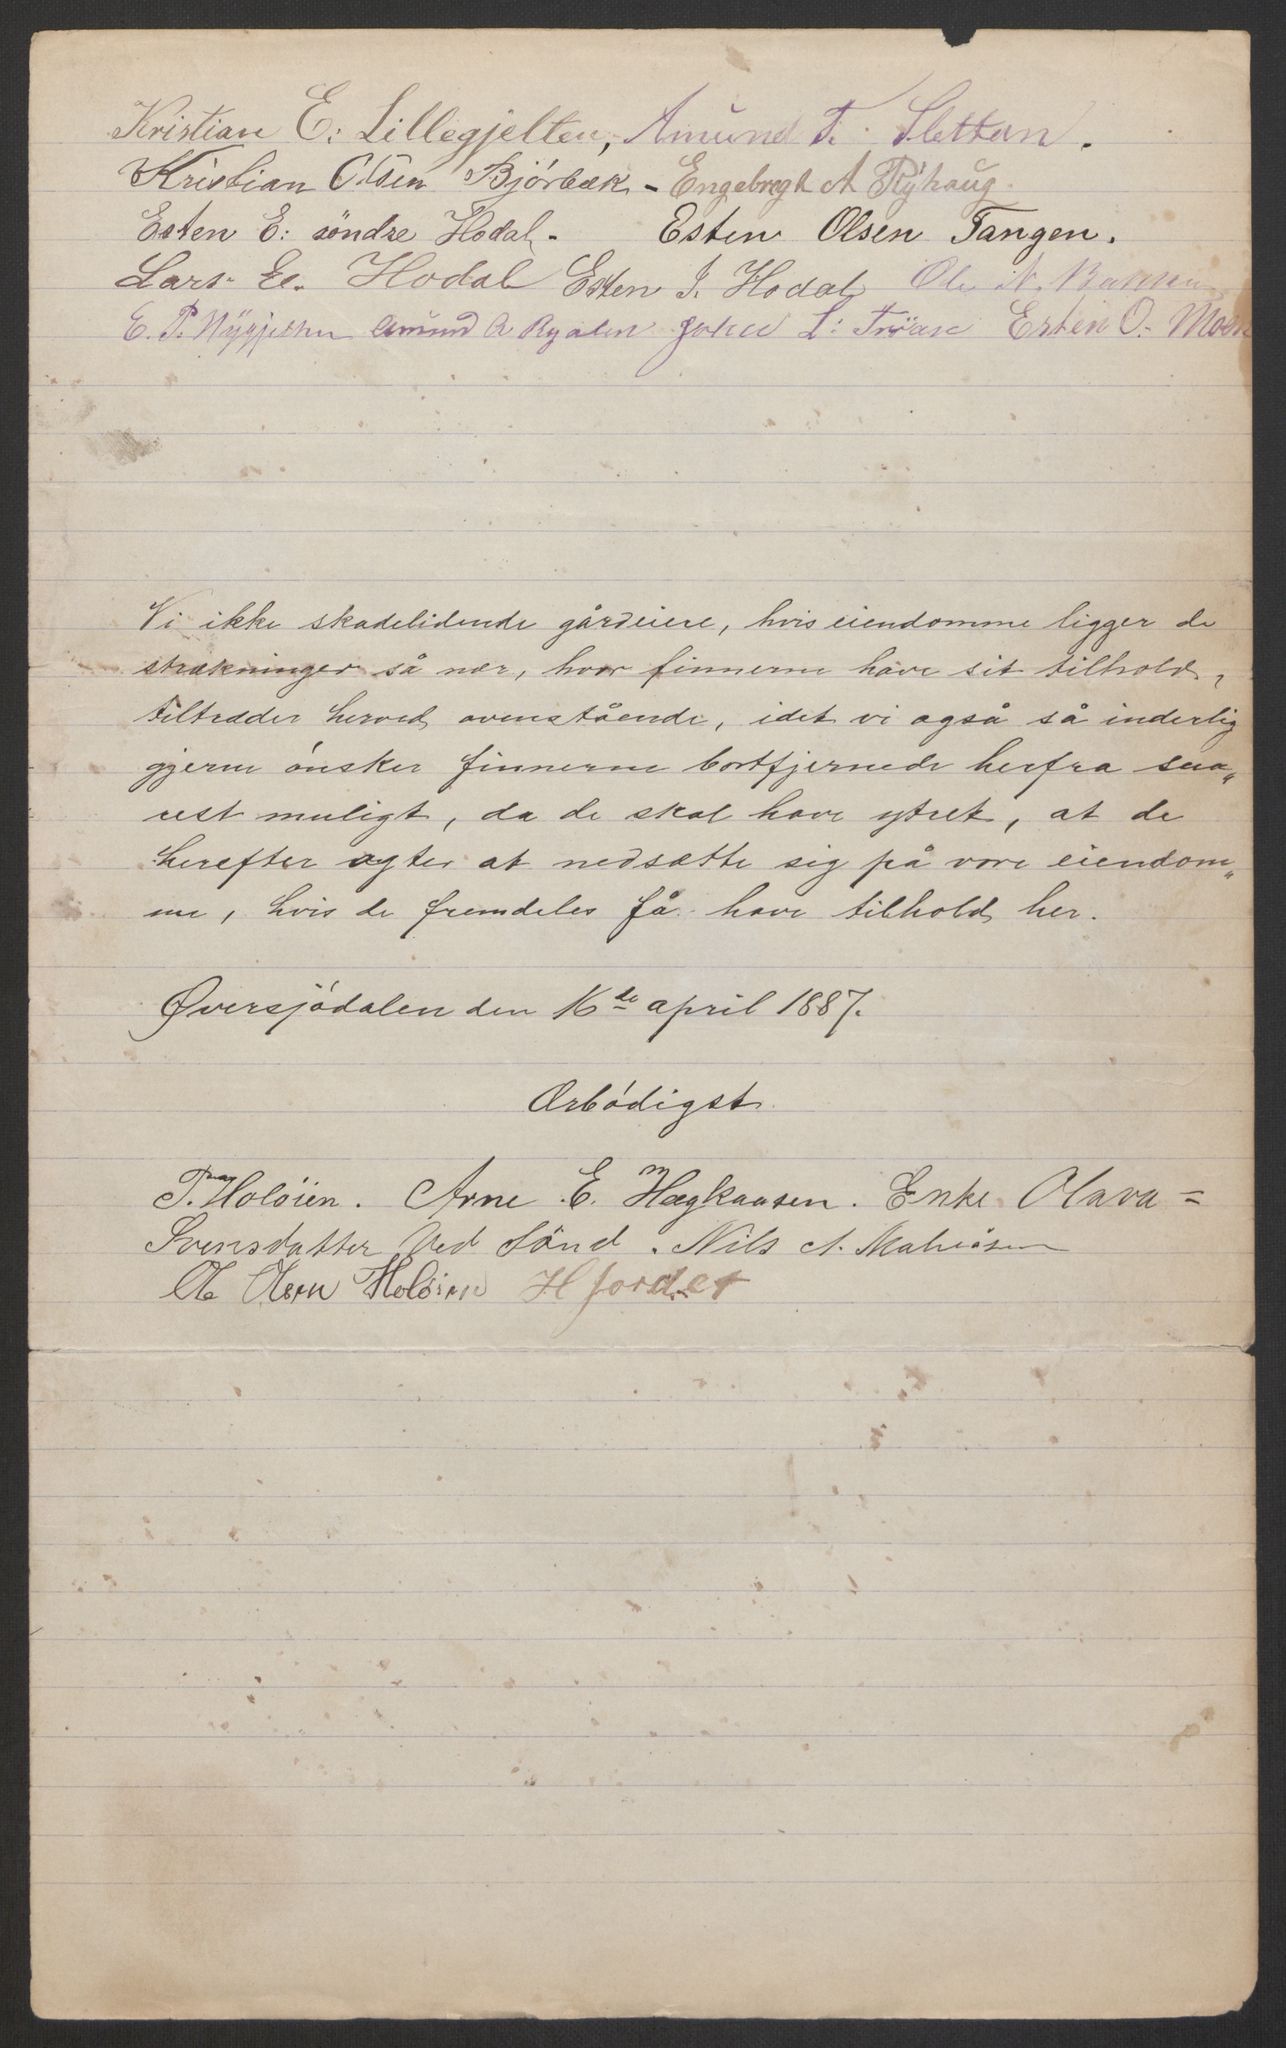 Kristian E: Lillegjelten, Amund T. Slettan.
Kristian Olsen Bjórbæk - Engebregt A Rÿhaug.
Esten E: söndre Hodal. Esten Olsen Tangen.
Lars E. Hodal Esten J. Hodal Ole N. Bakken
E. P. Nÿgjelten Amund A Ryalen John L: Tröan Esten O. Moen
Vi ikke skadelidende gårdeiere, hvis eiendomme ligger de
strækninger så nær, hvor finnerne have sit tilhold,
tiltræder herved ovenstående, idet vi også så inderlig
gjerne ónsker finnerne bortfjernede herfra sna„
rest muligt, da de skal have ytret, at de
herefter agter at nedsætte sig på vore eiendom„
me, hvis de fremdeles få have tilhold her.
Øversjódalen den 16de april 1887.
Ærbódigst
P. Holóien. Arne E. Hægkaasen. Enke Olava =
Svensdatter Ved Sönd. Nils A.
Ole Olsen Holöien H Jordet